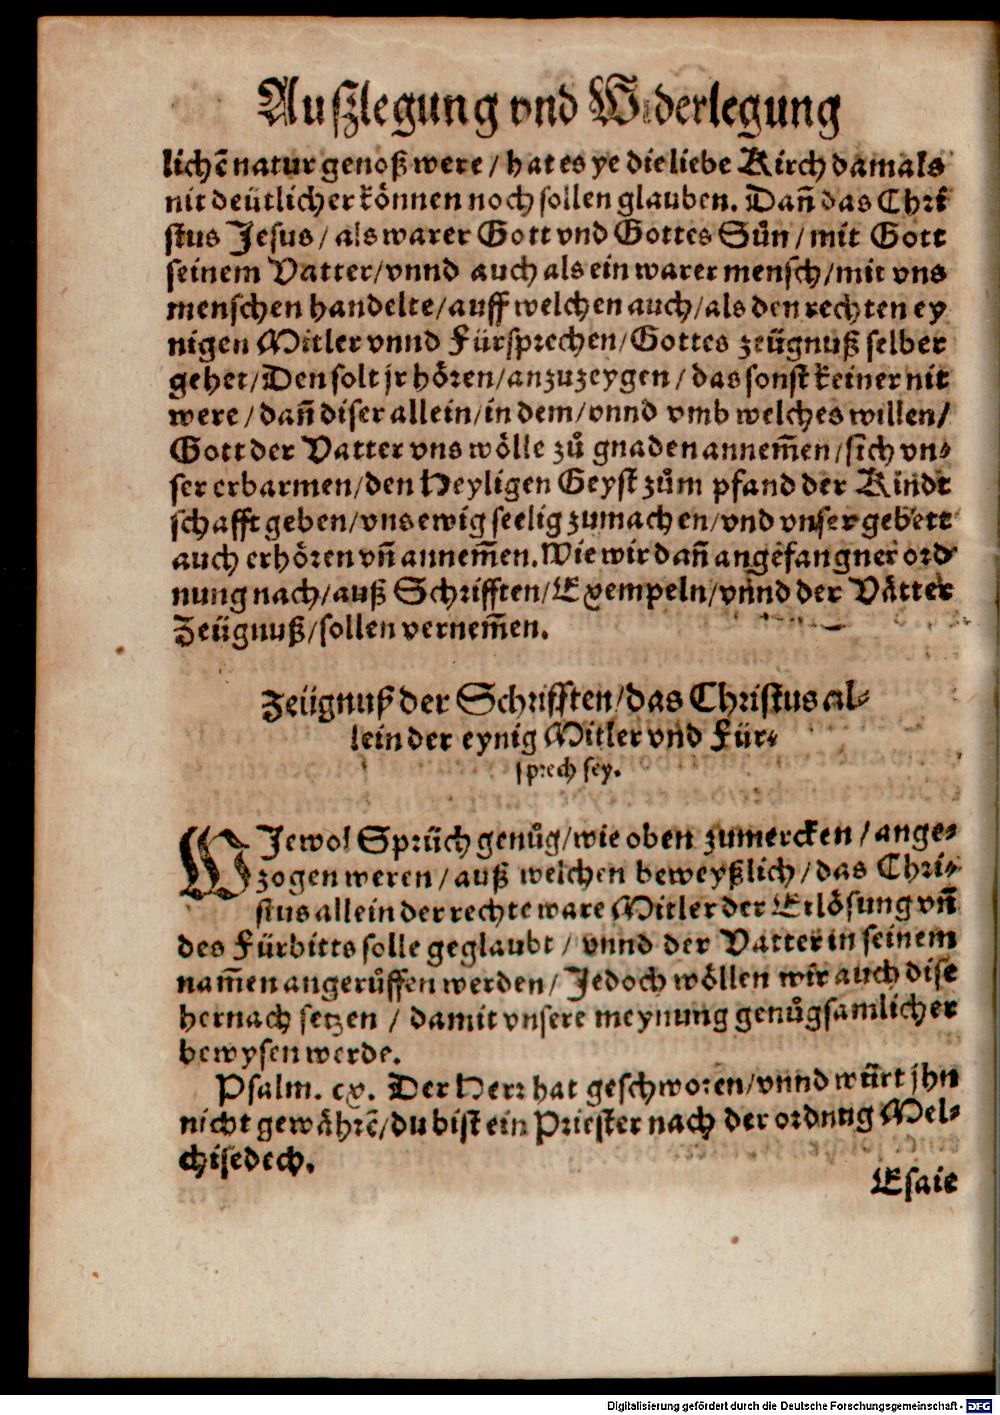 Außlegung vnd Widerlegung
lichẽ natur genoß were / hat es ye die liebe Kirch damals
nit deütlicher können noch sollen glauben. Dañ das Chri
stus Jesus / als warer Gott vnd Gottes Sůn / mit Gott
seinem Vatter / vnnd auch als ein warer mensch / mit vns
menschen handelte / auff welchen auch / als den rechten ey
nigen Mitler vnnd Fürsprechen / Gottes zeügnuß selber
gehet / Den solt jr hören / anzuzeygen / das sonst keiner nit
were / dañ diser allein / in dem / vnnd vmb welches willen /
Gott der Vatter vns wölle zů gnaden annem̃en / sich vn⸗
ser erbarmen / den Heyligen Geyst zům pfand der Kindt
schafft geben / vns ewig seelig zumachen / vnd vnser gebett
auch erhören vñ annem̃en. Wie wir dañ angefangner ord
nung nach / auß Schrifften / Exempeln / vnnd der Vätter
Zeügnuß / sollen vernem̃en.
Zeügnuß der Schrifften / das Christus al⸗
lein der eynig Mitler vnd Für⸗
sprech sey.
WJewol Sprüch genůg / wie oben zumercken / ange⸗
zogen weren / auß welchen beweyßlich / das Chri⸗
stus allein der rechte ware Mitler der Erlösung vñ
des Fürbitts solle geglaubt / vnnd der Vatter in seinem
nam̃en angerůffen werden / Jedoch wöllen wir auch dise
hernach setzen / damit vnsere meynung genůgsamlicher
bewysen werde.
Psalm. cx. Der Herr hat geschworen / vnnd würt jhn
nicht gewährẽ / du bist ein Priester nach der ordnũg Mel⸗
chisedech.
Esaie
Digitalisierung gefördert durch die Deutsche Forschungsgemeinschaft - DFG